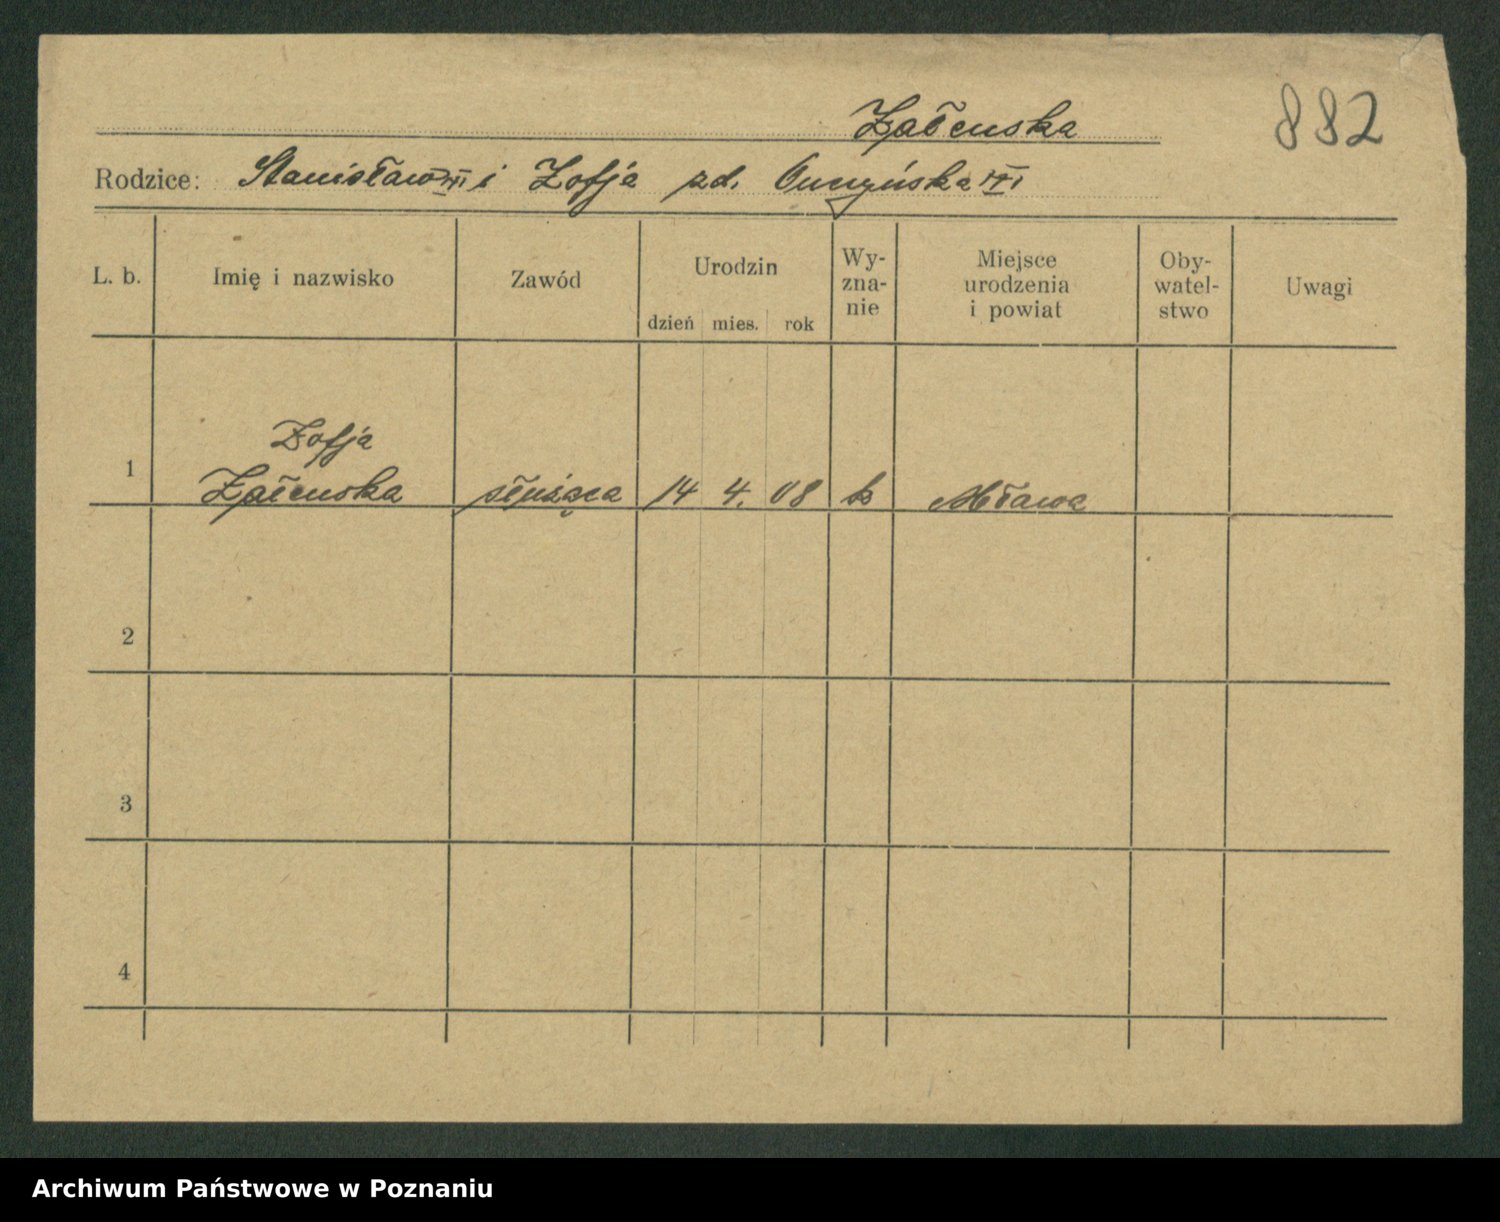 Załenska
882
Rodzice: Stanisław VI i Zofja zd.
L. b.
Imię i nazwisko
Zawód
Urodzin
dzień mies. rok
Wy-
zna-
nie
Miejsce
urodzenia
i powiat
Oby-
watel-
stwo
Uwagi
Zofja
1 Załenska służąca 14 4. 08 k Mława
2
3
4
Archiwum Państwowe w Poznaniu